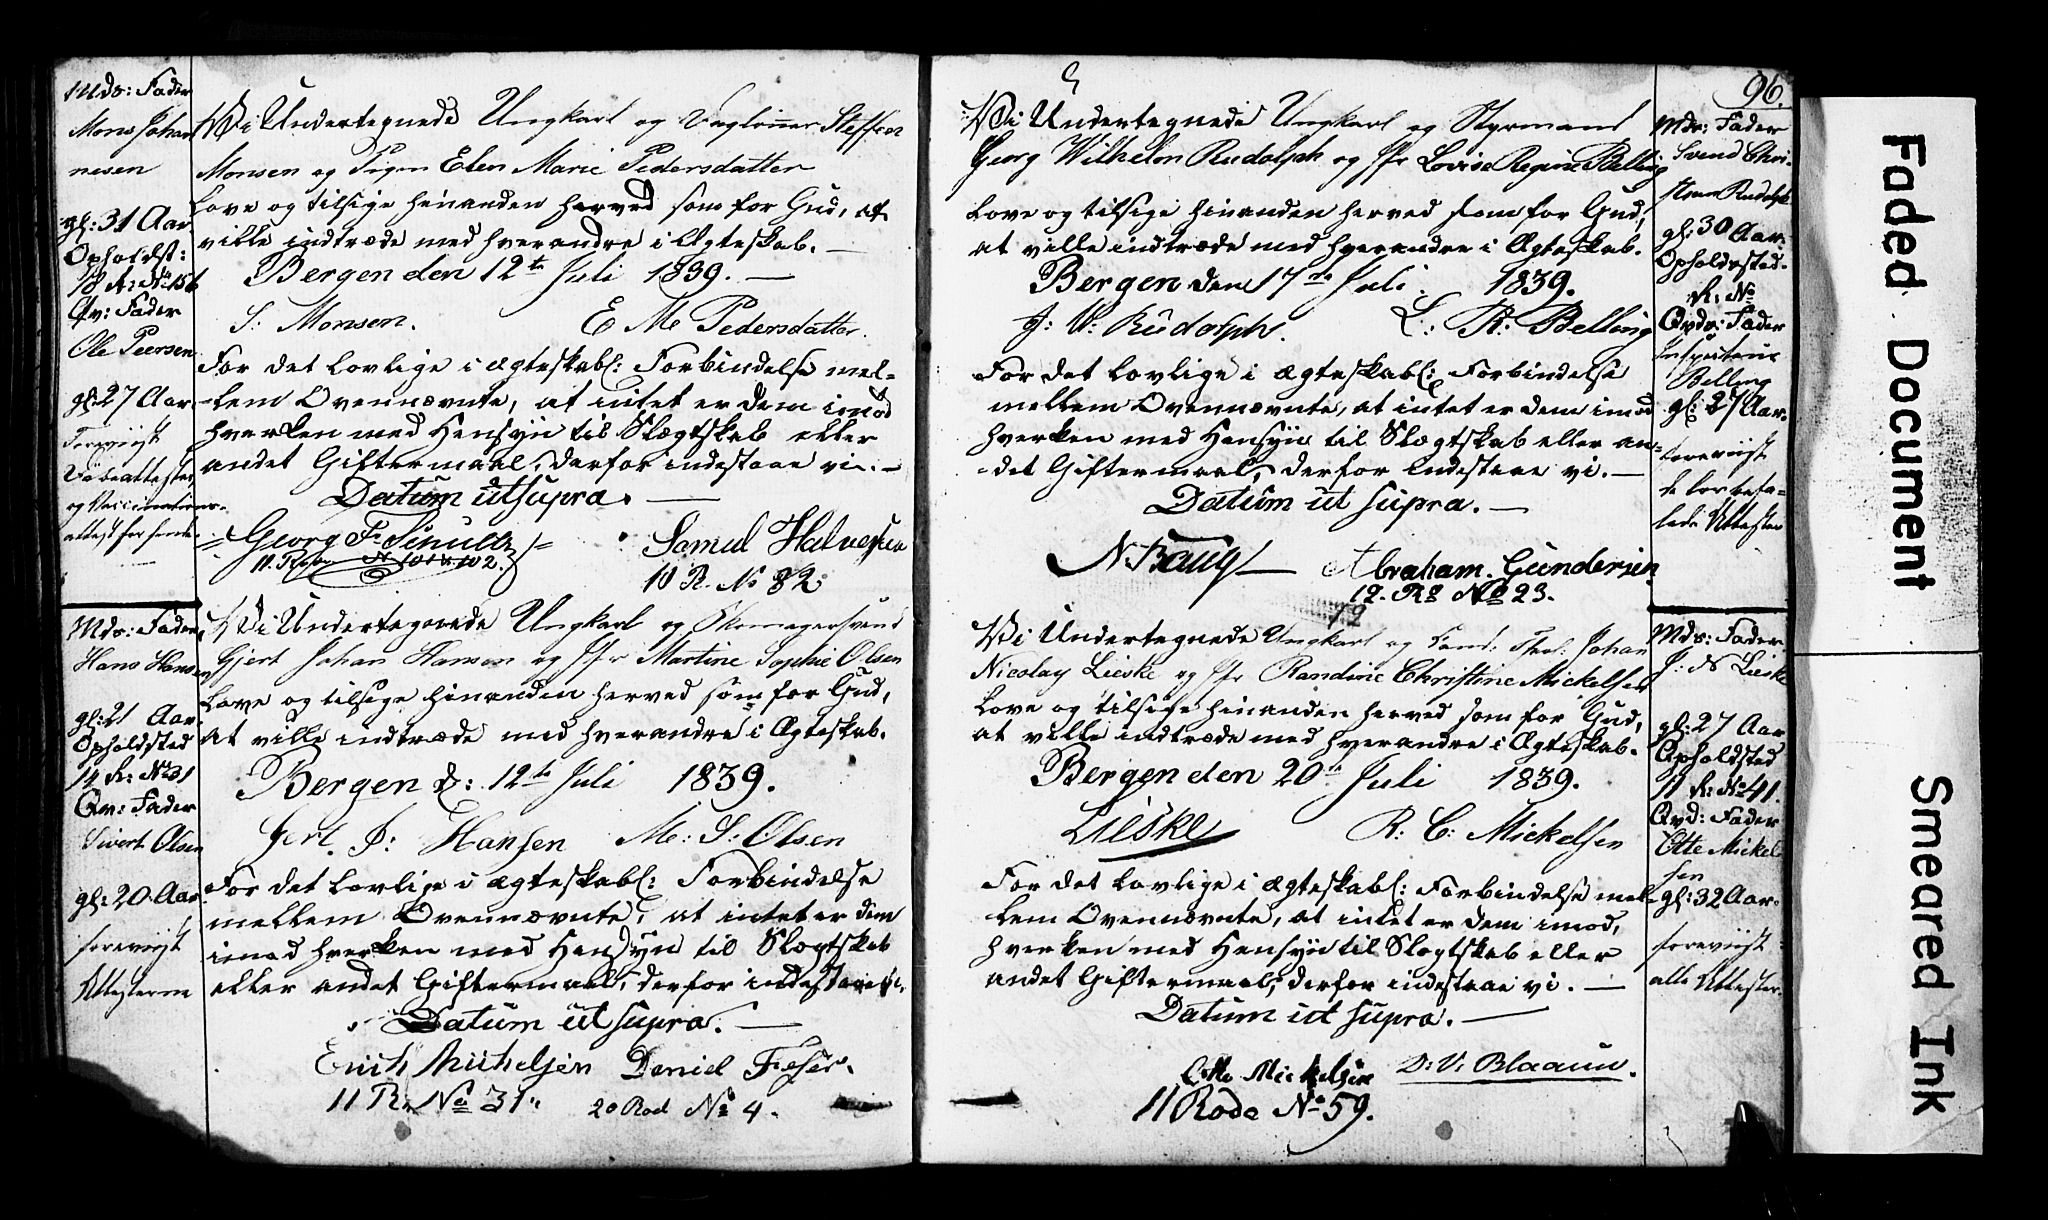 Mds: Fader
Mons Johan
nesen
gl: 31 Aar
Opholdst:
18 R: No 156
Qv: Fader
Ole Peersen
gl: 27 Aar
Foreviist
Døbeattester
og Vaccinations-
attest for
Vi Undertegnede Ungkarl og Steffen
Monsen og Pigen Elen Marie Pedersdatter
Love og tilsige hinanden herved som for Gud, at
ville indtræde med hverandre i Ægteskab. —
Bergen den 12te Juli 1839. —
S: Monsen. E M Pedersdatter.
For det lovlige i ægteskabl: Forbindelse mel-
-lem Ovennævnte, at intet er dem imod
hverken med Hensyn til Slægtskab eller
andet Giftermaal, derfor indestaae vi. —
Datum ut supra. —
Georg Fr
Samul Halvorsen
11. Rode No 102.
10 R. No 82.
Mds: Fader
Hans Hansen
gl: 21 Aar
Opholdsted
14 R: No 31
Qv: Fader
Sivert Olsen
gl: 20 Aar
foreviist
Attesterne
Vi Undertegnede Ungkarl og Skomagersvend
Gjert Johan Hansen og Jfr Martine Sophie Olsen
Love og tilsige hinanden herved som for Gud,
at ville indtræde med hverandre i Ægteskab.
Bergen d: 12te Juli 1839.
Gert J: Hansen M: S: Olsen
For det lovlige i ægteskabl: Forbindelse
mellem Ovennævnte, at intet er dem
imod hverken med Hensyn til Slægtskab
eller andet Giftermaal, derfor indestaae vi.
Datum ut supra. —
Erich Michelsen Daniel
11 R. No 31. 20 Rod No 4.
96.
Vi Undertegnede Ungkarl og Styrmand
Georg Wilhelm Rudolph og Jfr Lovise Regine Belling
Love og tilsige hinanden herved som for Gud,
at ville indtræde med hverandre i Ægteskab.
Bergen den 17de Juli 1839.
J: W: Rudolph. L: R: Belling
For det lovlige i ægteskabl: Forbindelse
mellem Ovennævnte, at intet er dem imod
hverken med Hensyn til Slægtskab eller an-
-det Giftermaal, derfor indestaae vi. —
Datum ut supra. —
N. Baug Abraham. Gundersen
12. R No 23.
Mds: Fader
Svend Chri-
stian Rudolph
gl: 30 Aar:
Opholdsted
R: No
Qvds: Fader
Belling
gl: 27 Aar.
foreviist
de anbefa-
lede Attester
12
Vi Undertegnede Ungkarl og Johan
Nicolay Lieske og Jfr Randine Christine Mickelsen
Love og tilsige hinanden herved som for Gud,
at ville indtræde med hverandre i Ægteskab.
Bergen den 20de Juli 1839.
Lieske R: C: Mickelsen
For det lovlige i ægteskabl: Forbindelse mel-
lem Ovennævnte, at intet er dem imod,
hverken med Hensyn til Slægtskab eller
andet Giftermaal, derfor indestaae vi. —
Datum ut supra. —
Otte Mickelsen D: V: Blaauw.
11 Rode No 59.
Mds: Fader
J: N Lieske
gl: 27 Aar
Opholdsted
11 R: No 41.
Qvd: Fader
Otte Mickel-
sen
gl: 32 Aar.
foreviist
alle Attester.
Faded Document
Smeared Ink